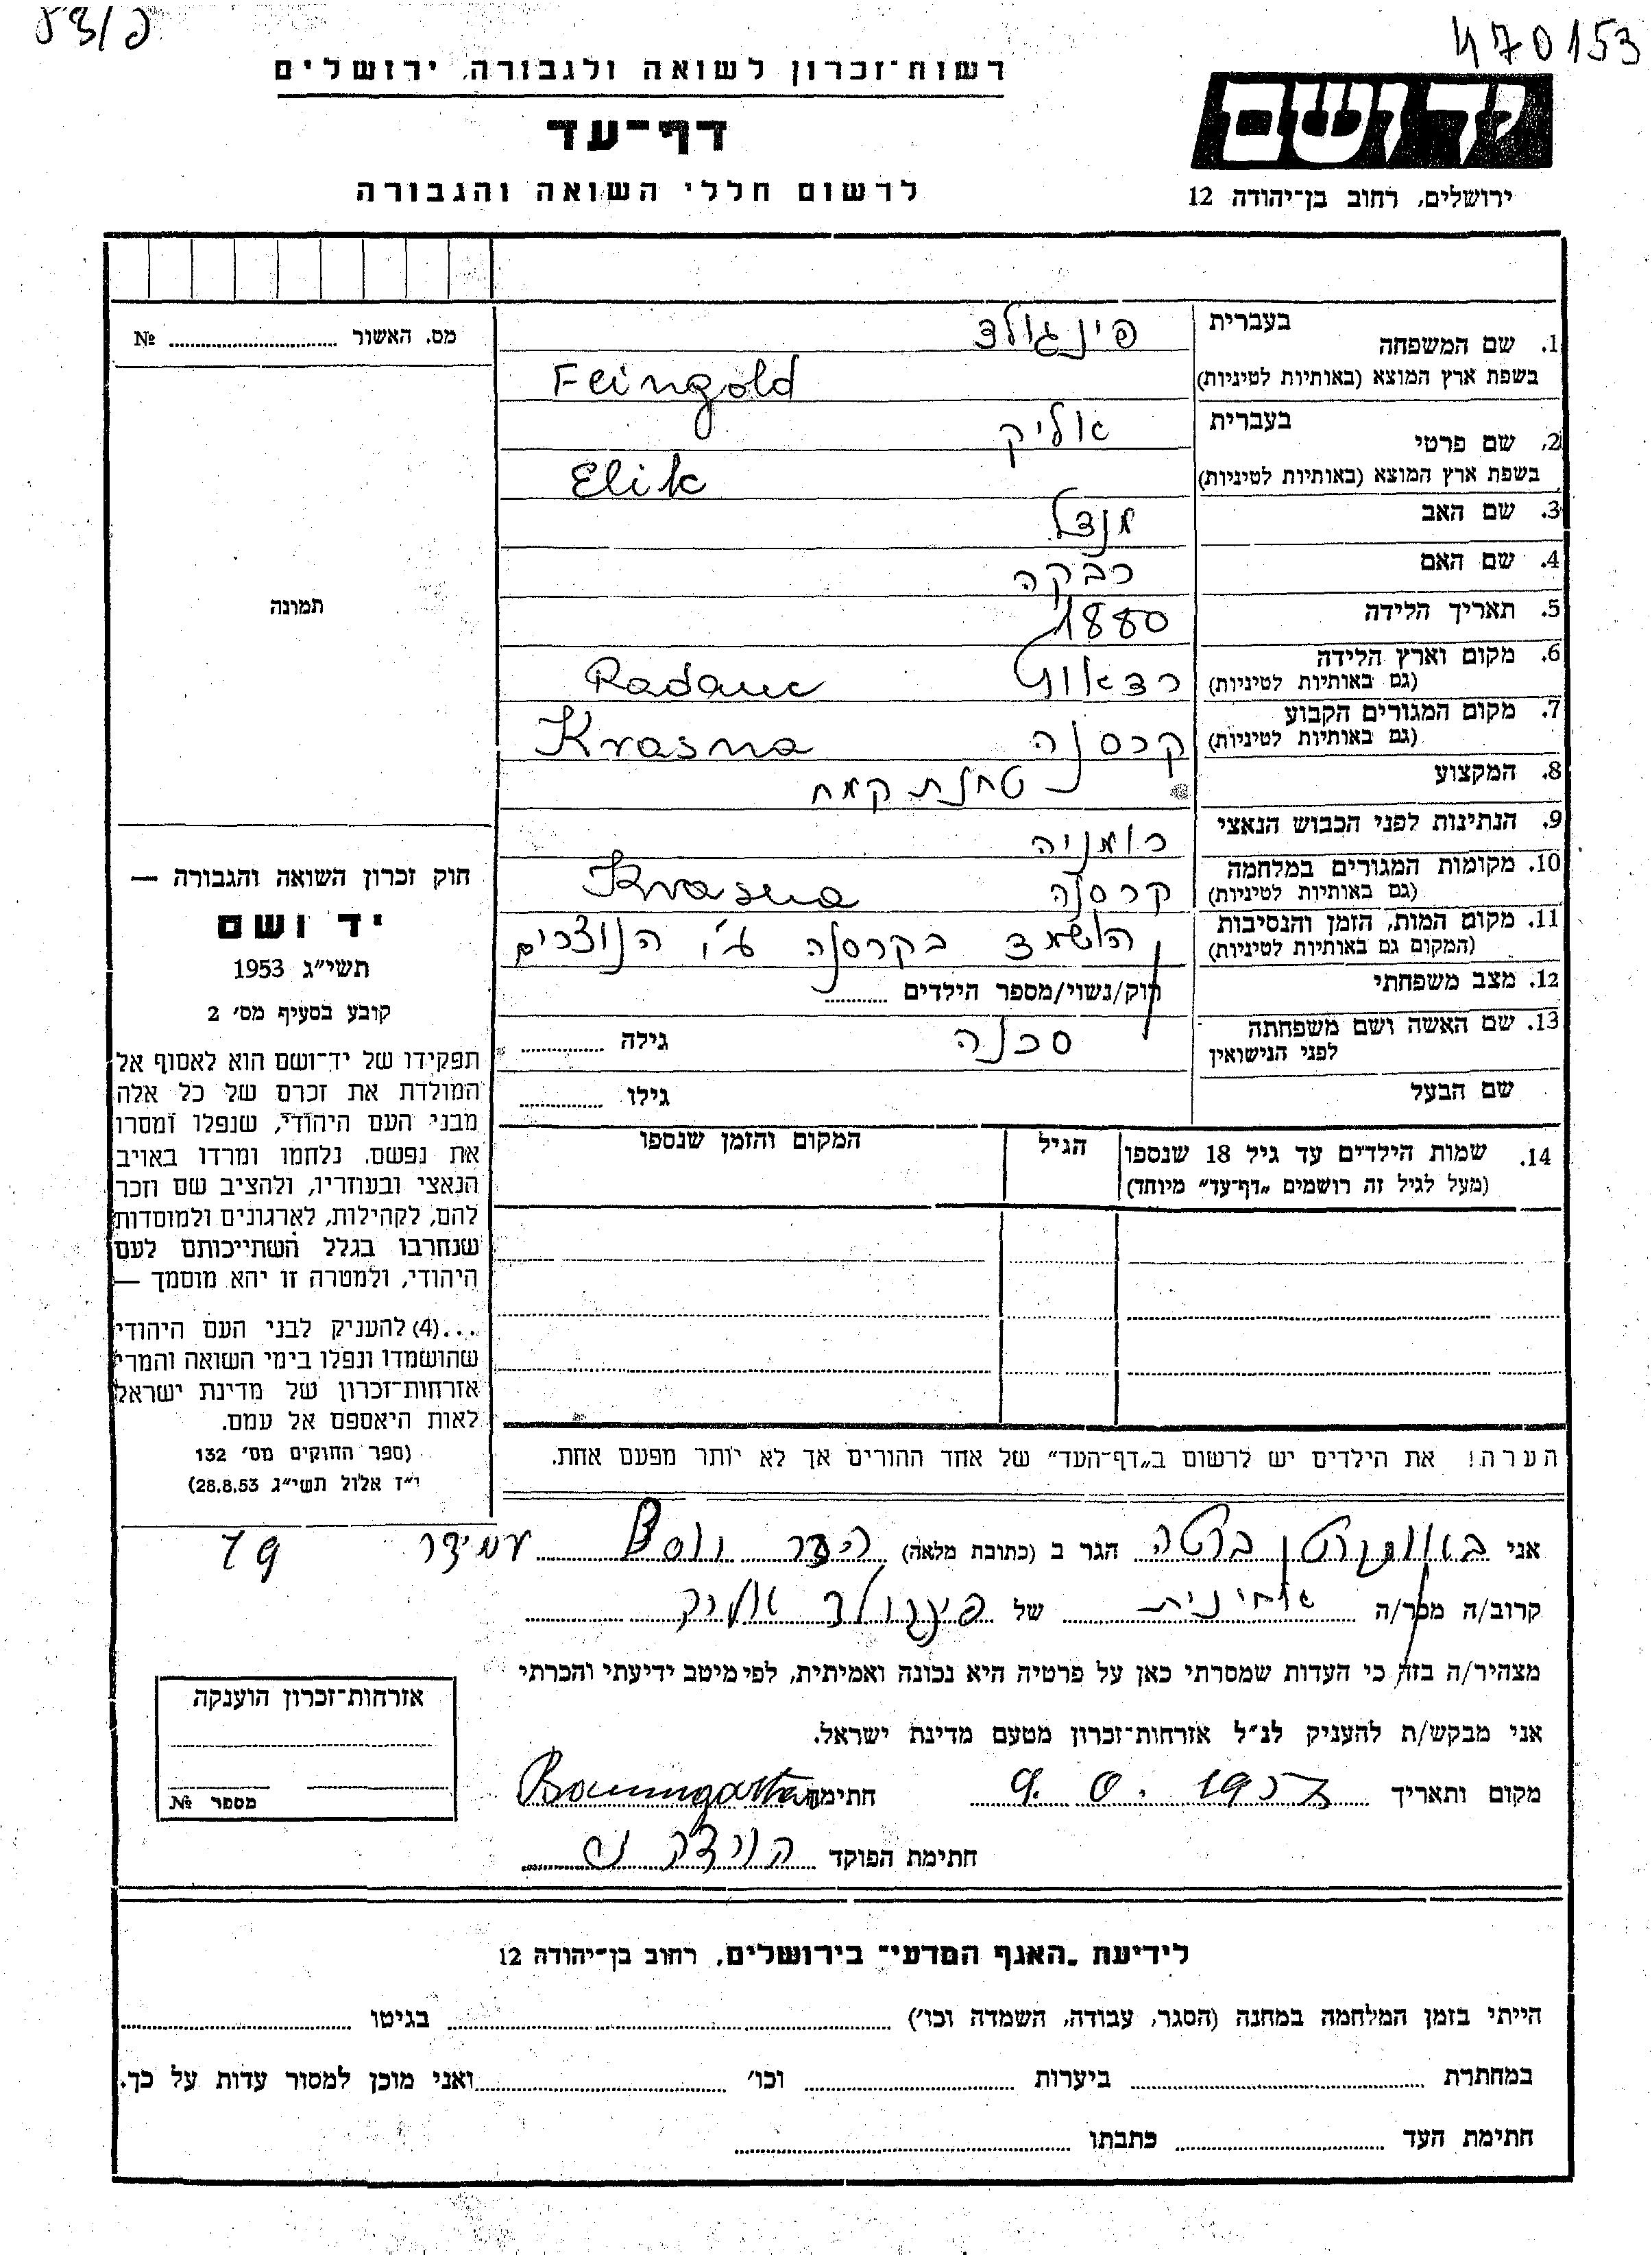 470153
רשות־זכרון לשואה ולגבורה, ירושלים
דף־עד
לרשום חללי השואה והגבורה
יד ושם
ירושלים, רחוב בן־יהודה 12
מס. האשור № 
1. שם המשפחה
בעברית פינגולד
בשפת ארץ המוצא (באותיות לטיניות) Feingold
2. שם פרטי
בעברית אליק
בשפת ארץ המוצא (באותיות לטיניות) Elik
3. שם האב מנדל
4. שם האם רבקה
5. תאריך הלידה 1880
6. מקום וארץ הלידה
(גם באותיות לטיניות) רדאוץ Radauc
7. מקום המגורים הקבוע
(גם באותיות לטיניות) קרסנה Krasna
8. המקצוע טחנת קמח
9. הנתינות לפני הכבוש הנאצי רומניה
10. מקומות המגורים במלחמה
(גם באותיות לטיניות) קרסנה Krasna
11. מקום המות, הזמן והנסיבות
(המקום גם באותיות לטיניות) הושמד בקרסנה ע"י הנוצרים
12. מצב משפחתי רוק/נשוי/מספר הילדים
13. שם האשה ושם משפחתה
לפני הנישואין
גילה
שם הבעל גילו
14. שמות הילדים עד גיל 18 שנספו
(מעל לגיל זה רושמים „דף־עד" מיוחד)
הגיל
המקום והזמן שנספו
תמונה
חוק זכרון השואה והגבורה —
יד ושם
תשי"ג 1953
קובע בסעיף מס׳ 2
תפקידו של יד־ושם הוא לאסוף אל
המולדת את זכרם של כל אלה
מבני העם היהודי, שנפלו ומסרו
את נפשם, נלחמו ומרדו באויב
הנאצי ובעוזריו, ולהציב שם וזכר
להם, לקהילות, לארגונים ולמוסדות
שנחרבו בגלל השתייכותם לעם
היהודי, ולמטרה זו יהא מוסמך —
...(4) להעניק לבני העם היהודי
שהושמדו ונפלו בימי השואה והמרי
אזרחות־זכרון של מדינת ישראל
לאות היאספם אל עמם.
(ספר החוקים מס׳ 132
י"ז אלול תשי"ג 28.8.53)
הערה! את הילדים יש לרשום ב„דף־העד" של אחד ההורים אך לא יותר מפעם אחת.
אני באומגרטן ברטה הגר ב (כתובת מלאה) עמידר 79
קרוב/ה מכר/ה אחינית של פינגולד אליק
מצהיר/ה בזה כי העדות שמסרתי כאן על פרטיה היא נכונה ואמיתית, לפי מיטב ידיעתי והכרתי
אני מבקש/ת להעניק לנ"ל אזרחות־זכרון מטעם מדינת ישראל.
מקום ותאריך חתימה Baumgarten
חתימת הפוקד
אזרחות־זכרון הוענקה
מספר №
לידיעת „האגף המדעי" בירושלים, רחוב בן־יהודה 12
הייתי בזמן המלחמה במחנה (הסגר, עבודה, השמדה וכו׳) בגיטו
במחתרת ביערות וכו׳ ואני מוכן למסור עדות על כך.
חתימת העד כתבתו